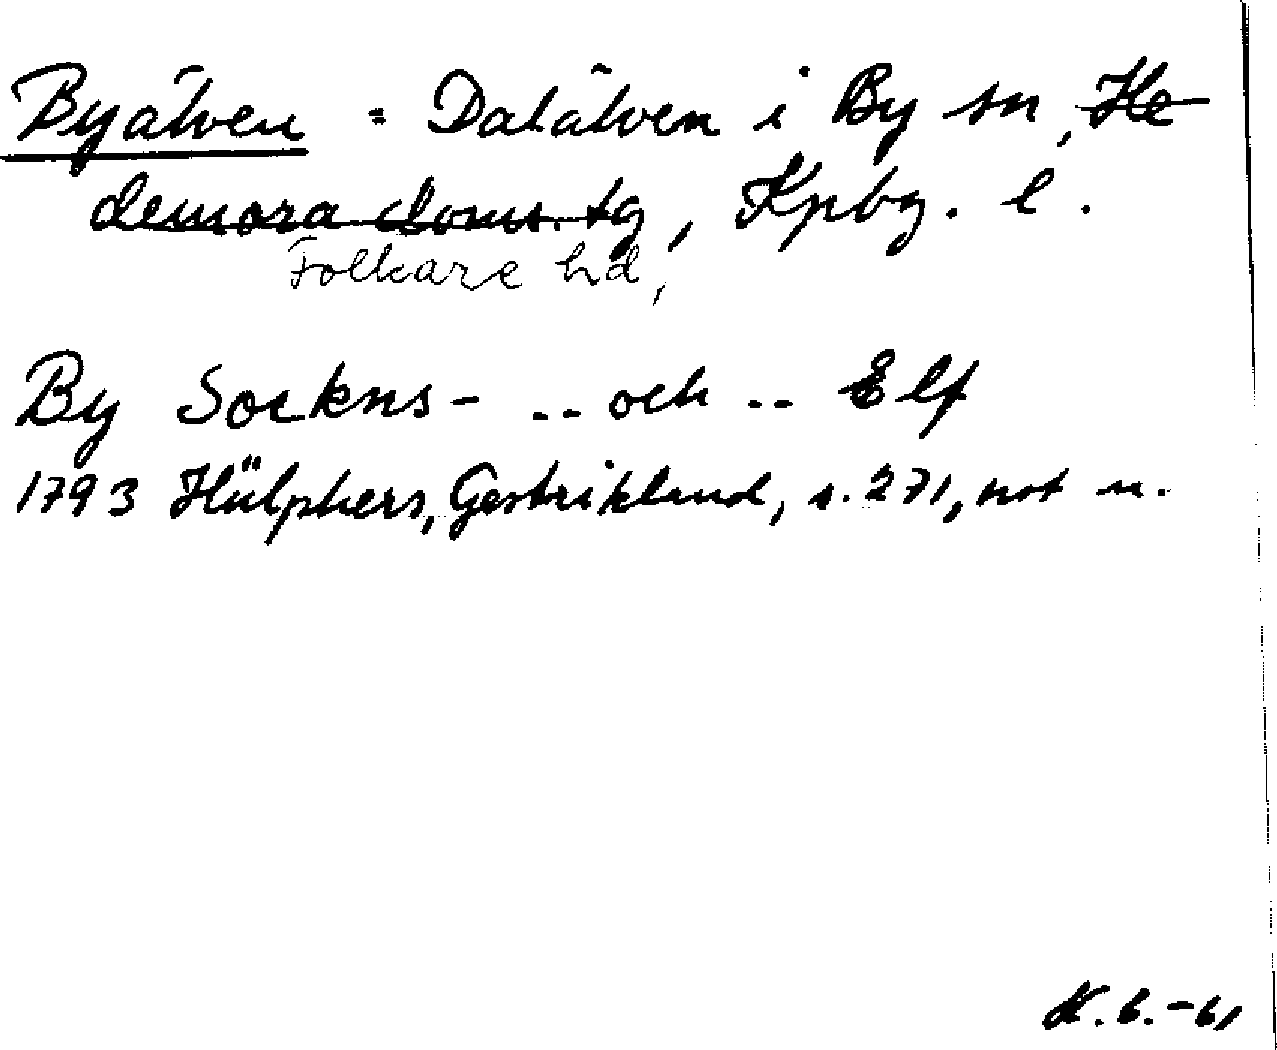 Byälven = Dalälven i By sn, He
demora doms. tg, Kpbg. l.
Folkare hd,
By Sockns- .. och .. Elf
1793 Hülphers, Gestrikland, s. 271, not n.
K.B.-61